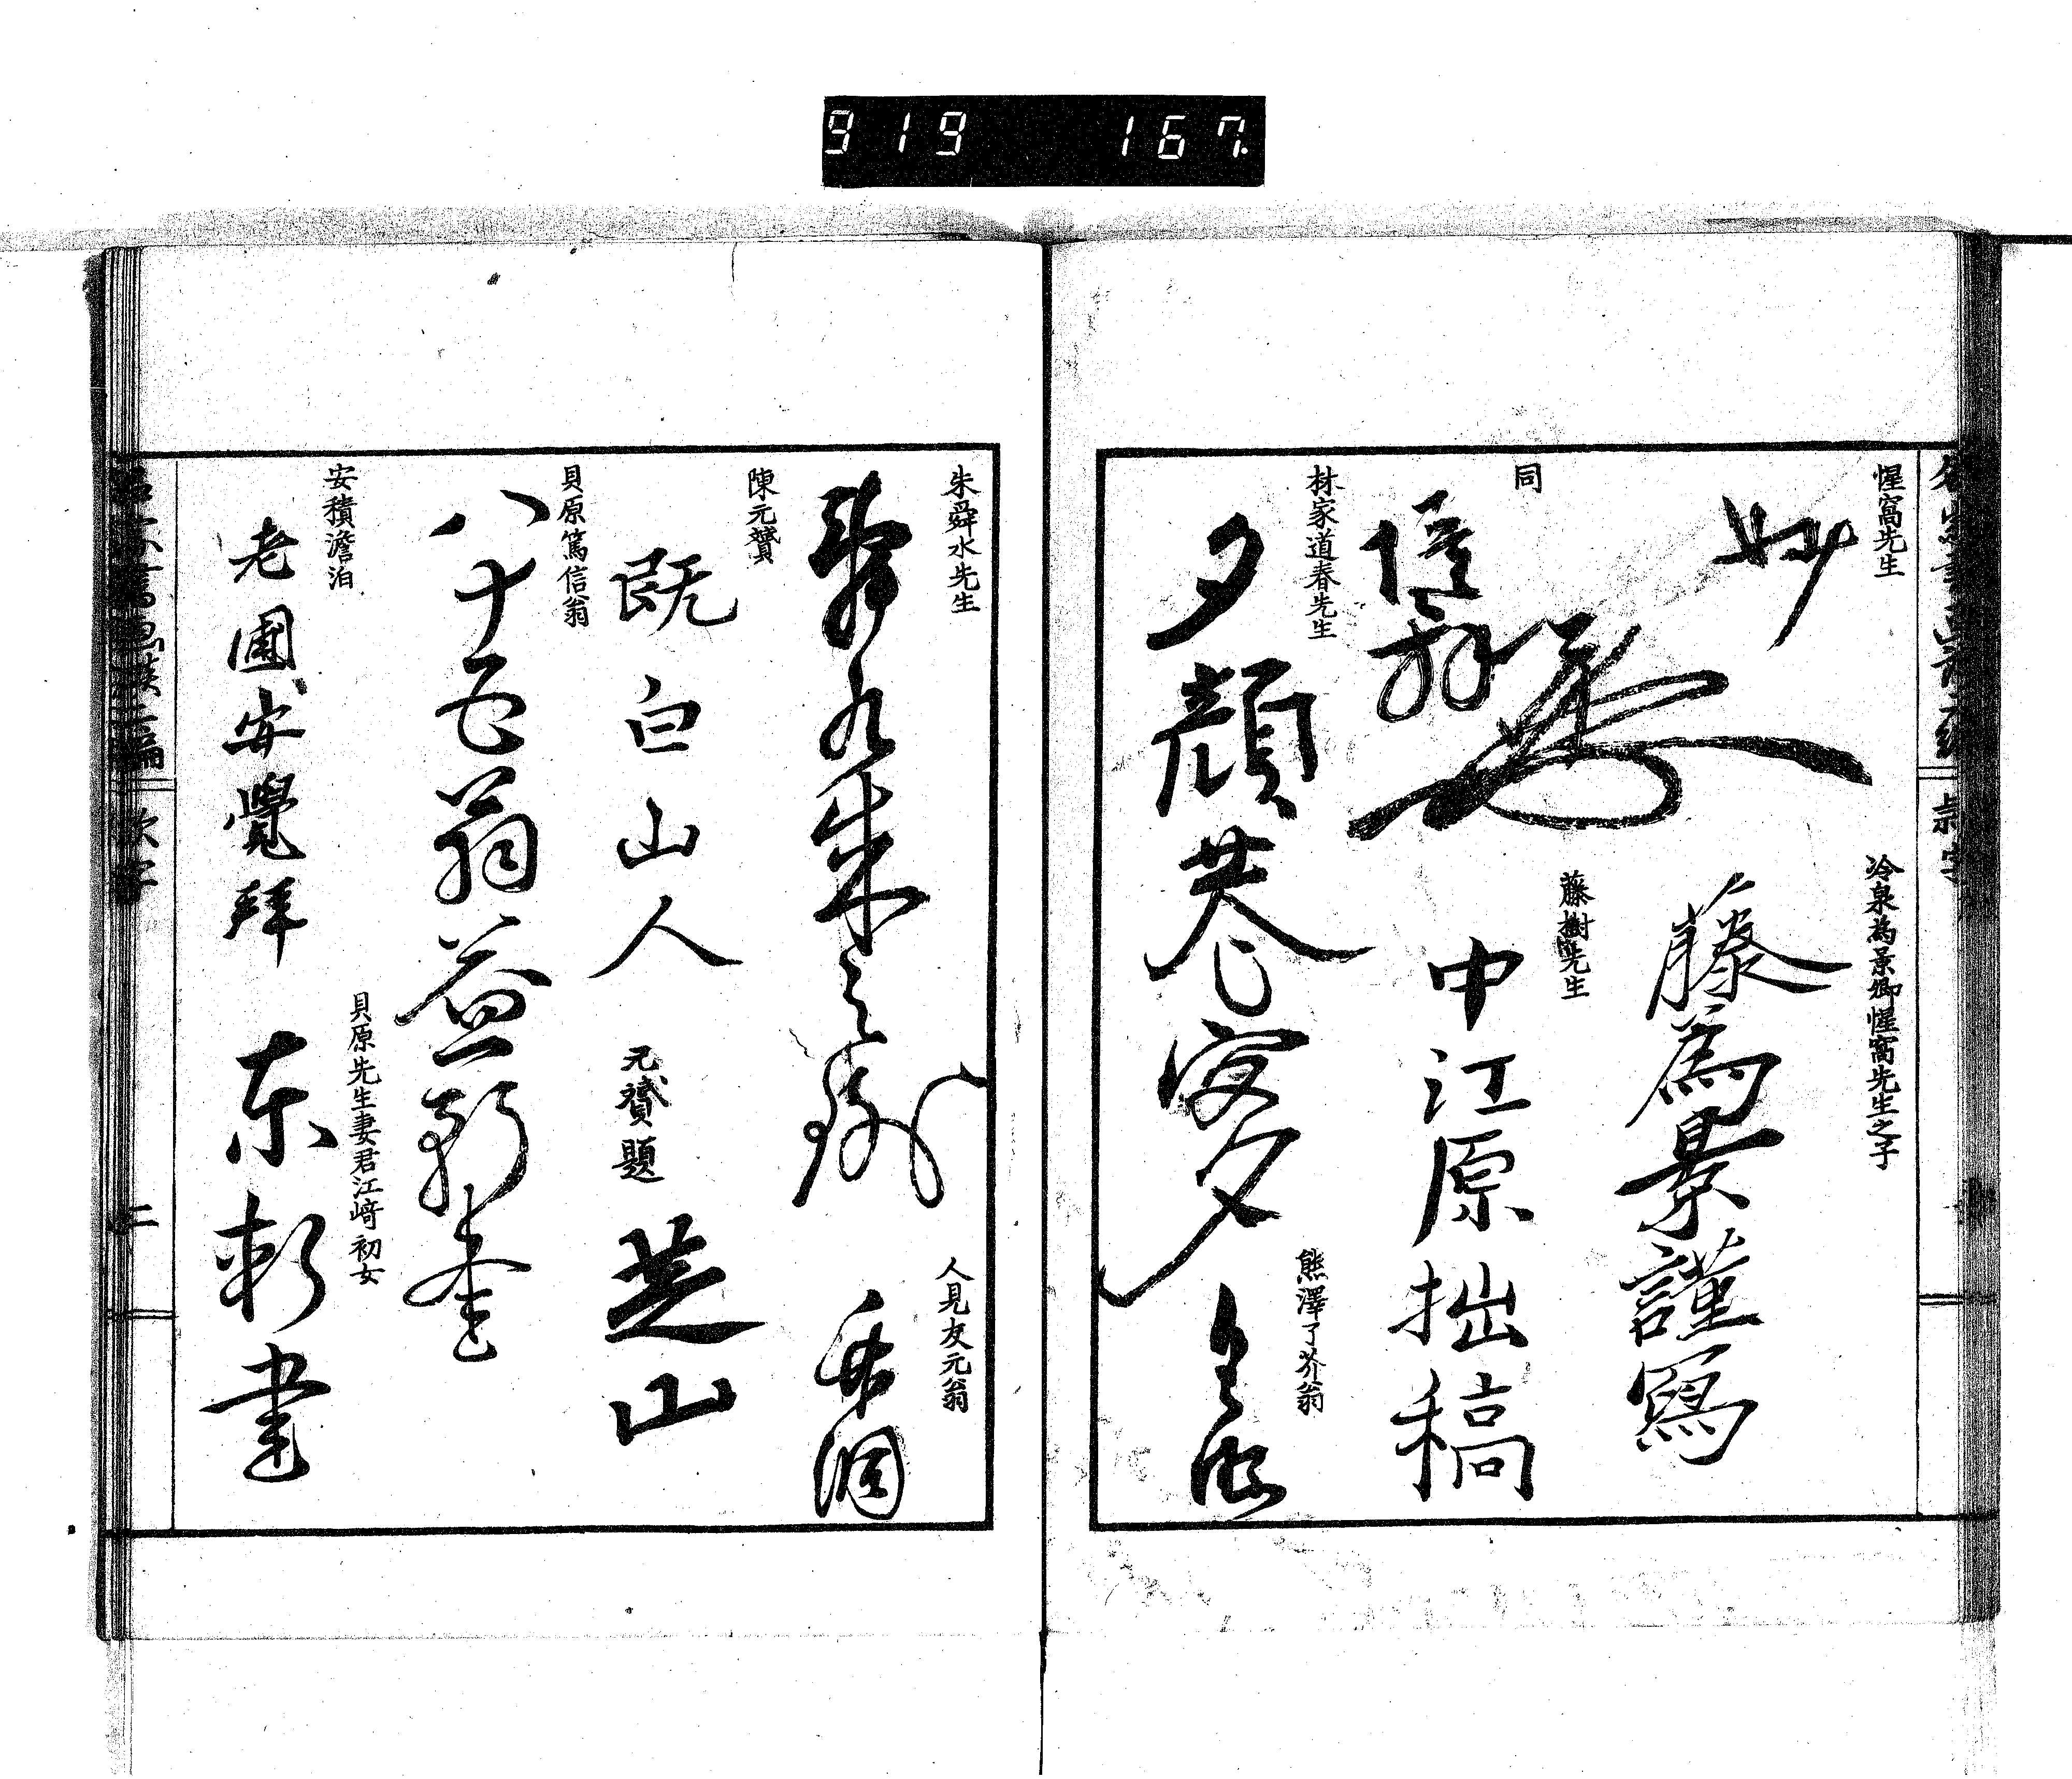 919 167
惺窩先生
妙
冷泉為景卿惺窩先生之子
藤為景謹寫
同
藤樹先生
中江原拙稿
林家道春先生
夕顔巷
熊澤了芥翁
朱舜水先生
舜水朱之瑜
人見友元翁
竹洞
陳元贇
既白山人
元贇題
芝山
貝原篤信翁
八十五翁益軒書
安積澹泊
老圃安覺拜
貝原先生妻君江﨑初女
東軒書
二